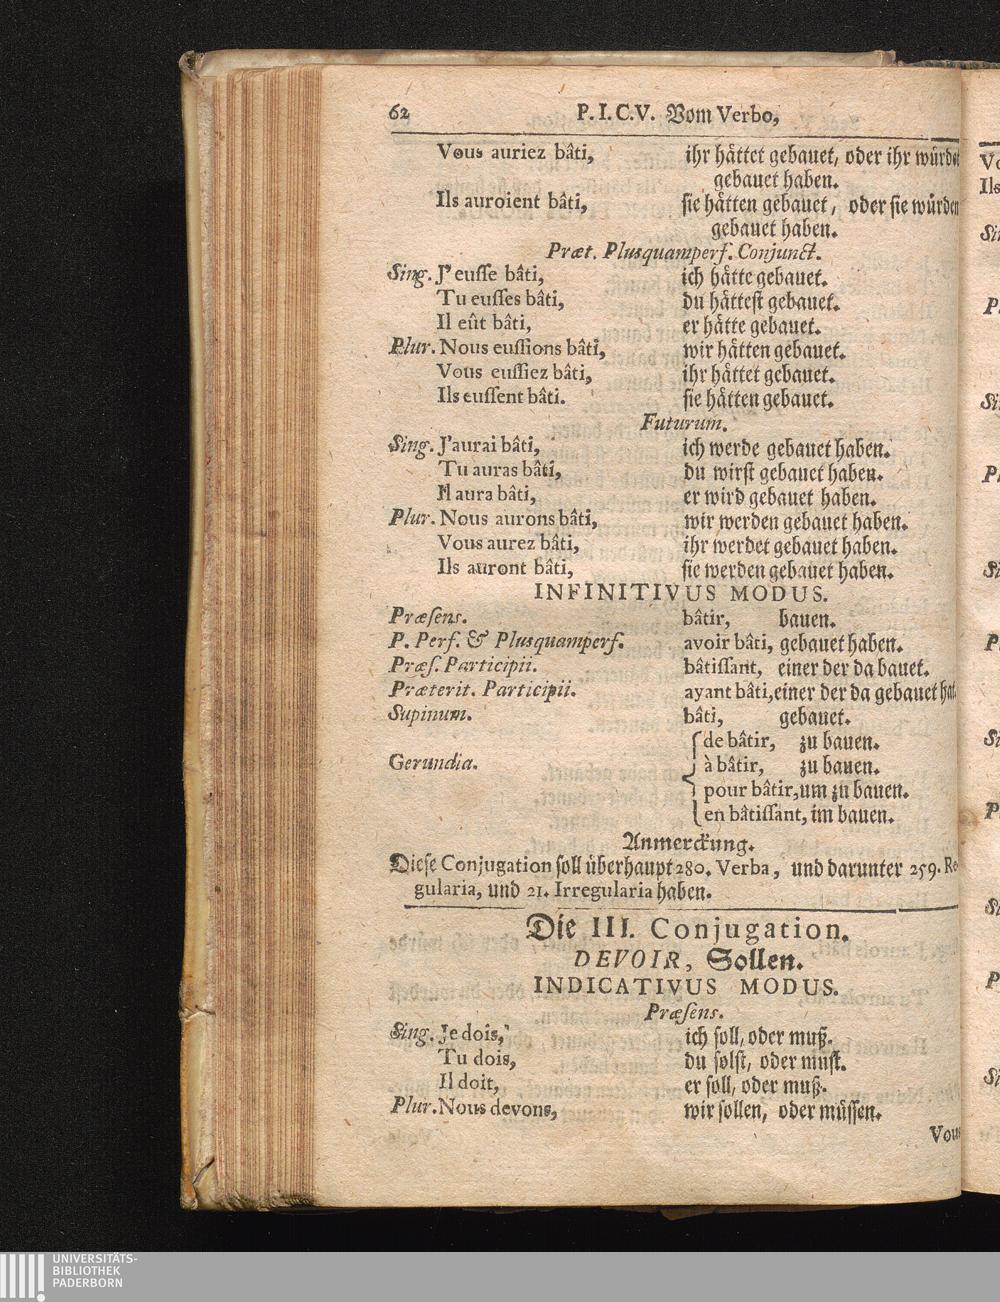 62 P. I. C. V. Vom Verbo,
Vous auriez bâti, ihr hättet gebauet, oder ihr würde
gebauet haben.
Ils auroient bâti, sie hätten gebauet, oder sie würden
gebauet haben.
Præt. Plusquamperf. Conjunct.
Sing. J'eusse bâti, ich hätte gebauet.
Tu eusses bâti, du hättest gebauet.
Il eût bâti, er hätte gebauet.
Plur. Nous eussions bâti, wir hätten gebauet.
Vous eussiez bâti, ihr hättet gebauet.
Ils eussent bâti. sie hätten gebauet.
Futurum.
Sing. J'aurai bâti, ich werde gebauet haben.
Tu auras bâti, du wirst gebauet haben.
Il aura bâti, er wird gebauet haben.
Plur. Nous aurons bâti, wir werden gebauet haben.
Vous aurez bâti, ihr werdet gebauet haben.
Ils auront bâti, sie werden gebauet haben.
INFINITIVUS MODUS.
Præsens. bâtir, bauen.
P. Perf. & Plusquamperf. avoir bâti, gebauet haben.
Præs. Participii. bâtissant, einer der da bauet.
Præterit. Participii. ayant bâti, einer der da gebauet hat.
Supinum. bâti, gebauet.
de bâtir, zu bauen.
Gerundia. à bâtir, zu bauen.
pour bâtir, um zu bauen.
en bâtissant, im bauen.
Anmerckung.
Diese Conjugation soll überhaupt 280. Verba, und darunter 259. Re
gularia, und 21. Irregularia haben.
Die III. Conjugation.
DEVOIR, Sollen.
INDICATIVUS MODUS.
Præsens.
Sing. Je dois, ich soll, oder muß.
Tu dois, du solst, oder must.
Il doit, er soll, oder muß.
Plur. Nous devons, wir sollen, oder müssen.
Vous
Ils
UNIVERSITÄTS-
BIBLIOTHEK
PADERBORN